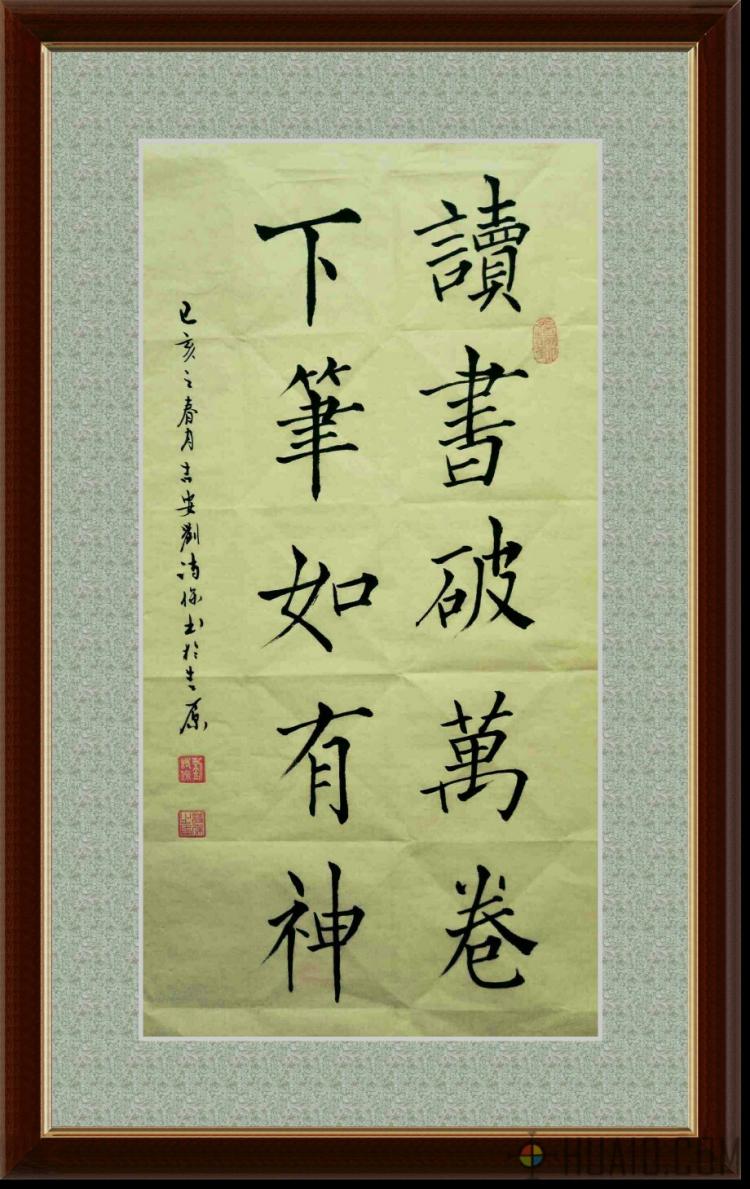 讀書破萬卷
下筆如有神
己亥之春月吉安劉書於青原
HUAID.COM